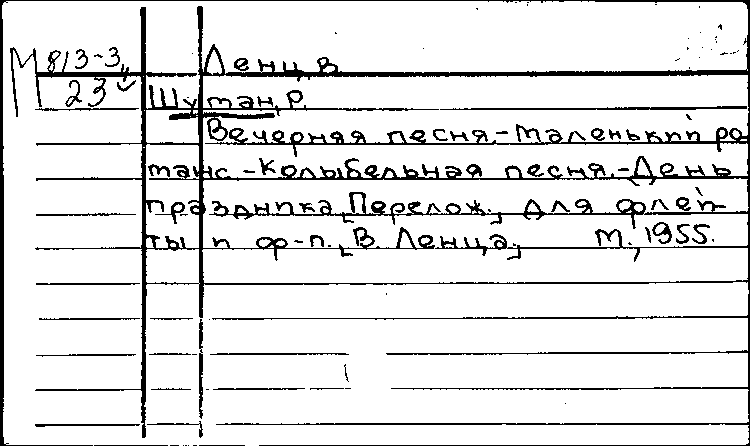 М 813-3 Ленц, В.
23
Шуман, Р.
Вечерняя песня.-Маленький ро
манс.-Колыбельная песня.-День
праздника. [Перелож.] для флей-
ты и ф-п. [В. Ленца]. М., 1955.